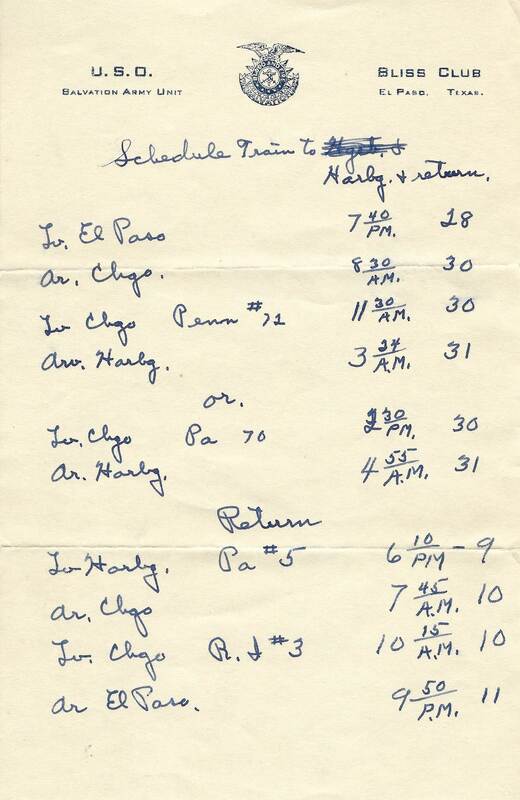 U.S.O.
SALVATION ARMY UNIT
BLISS CLUB
EL PASO, TEXAS.
Schedule Train to
Harbg. & return.
Lv. El Paso 7 40 P.M. 28
Ar. Chgo. 8 30 A.M. 30
Lv Chgo Penn #72 11 30 A.M. 30
Arv. Harbg. 3 24 A.M. 31
or.
Lv. Chgo Pa 70 30 P.M. 30
Ar. Harbg. 4 55 A.M. 31
Return
Lv Harbg. Pa #5 6 10 PM - 9
Ar. Chgo 7 45 A.M. 10
Lv. Chgo R.I #3 10 15 A.M. 10
Ar El Paso. 9 50 P.M. 11